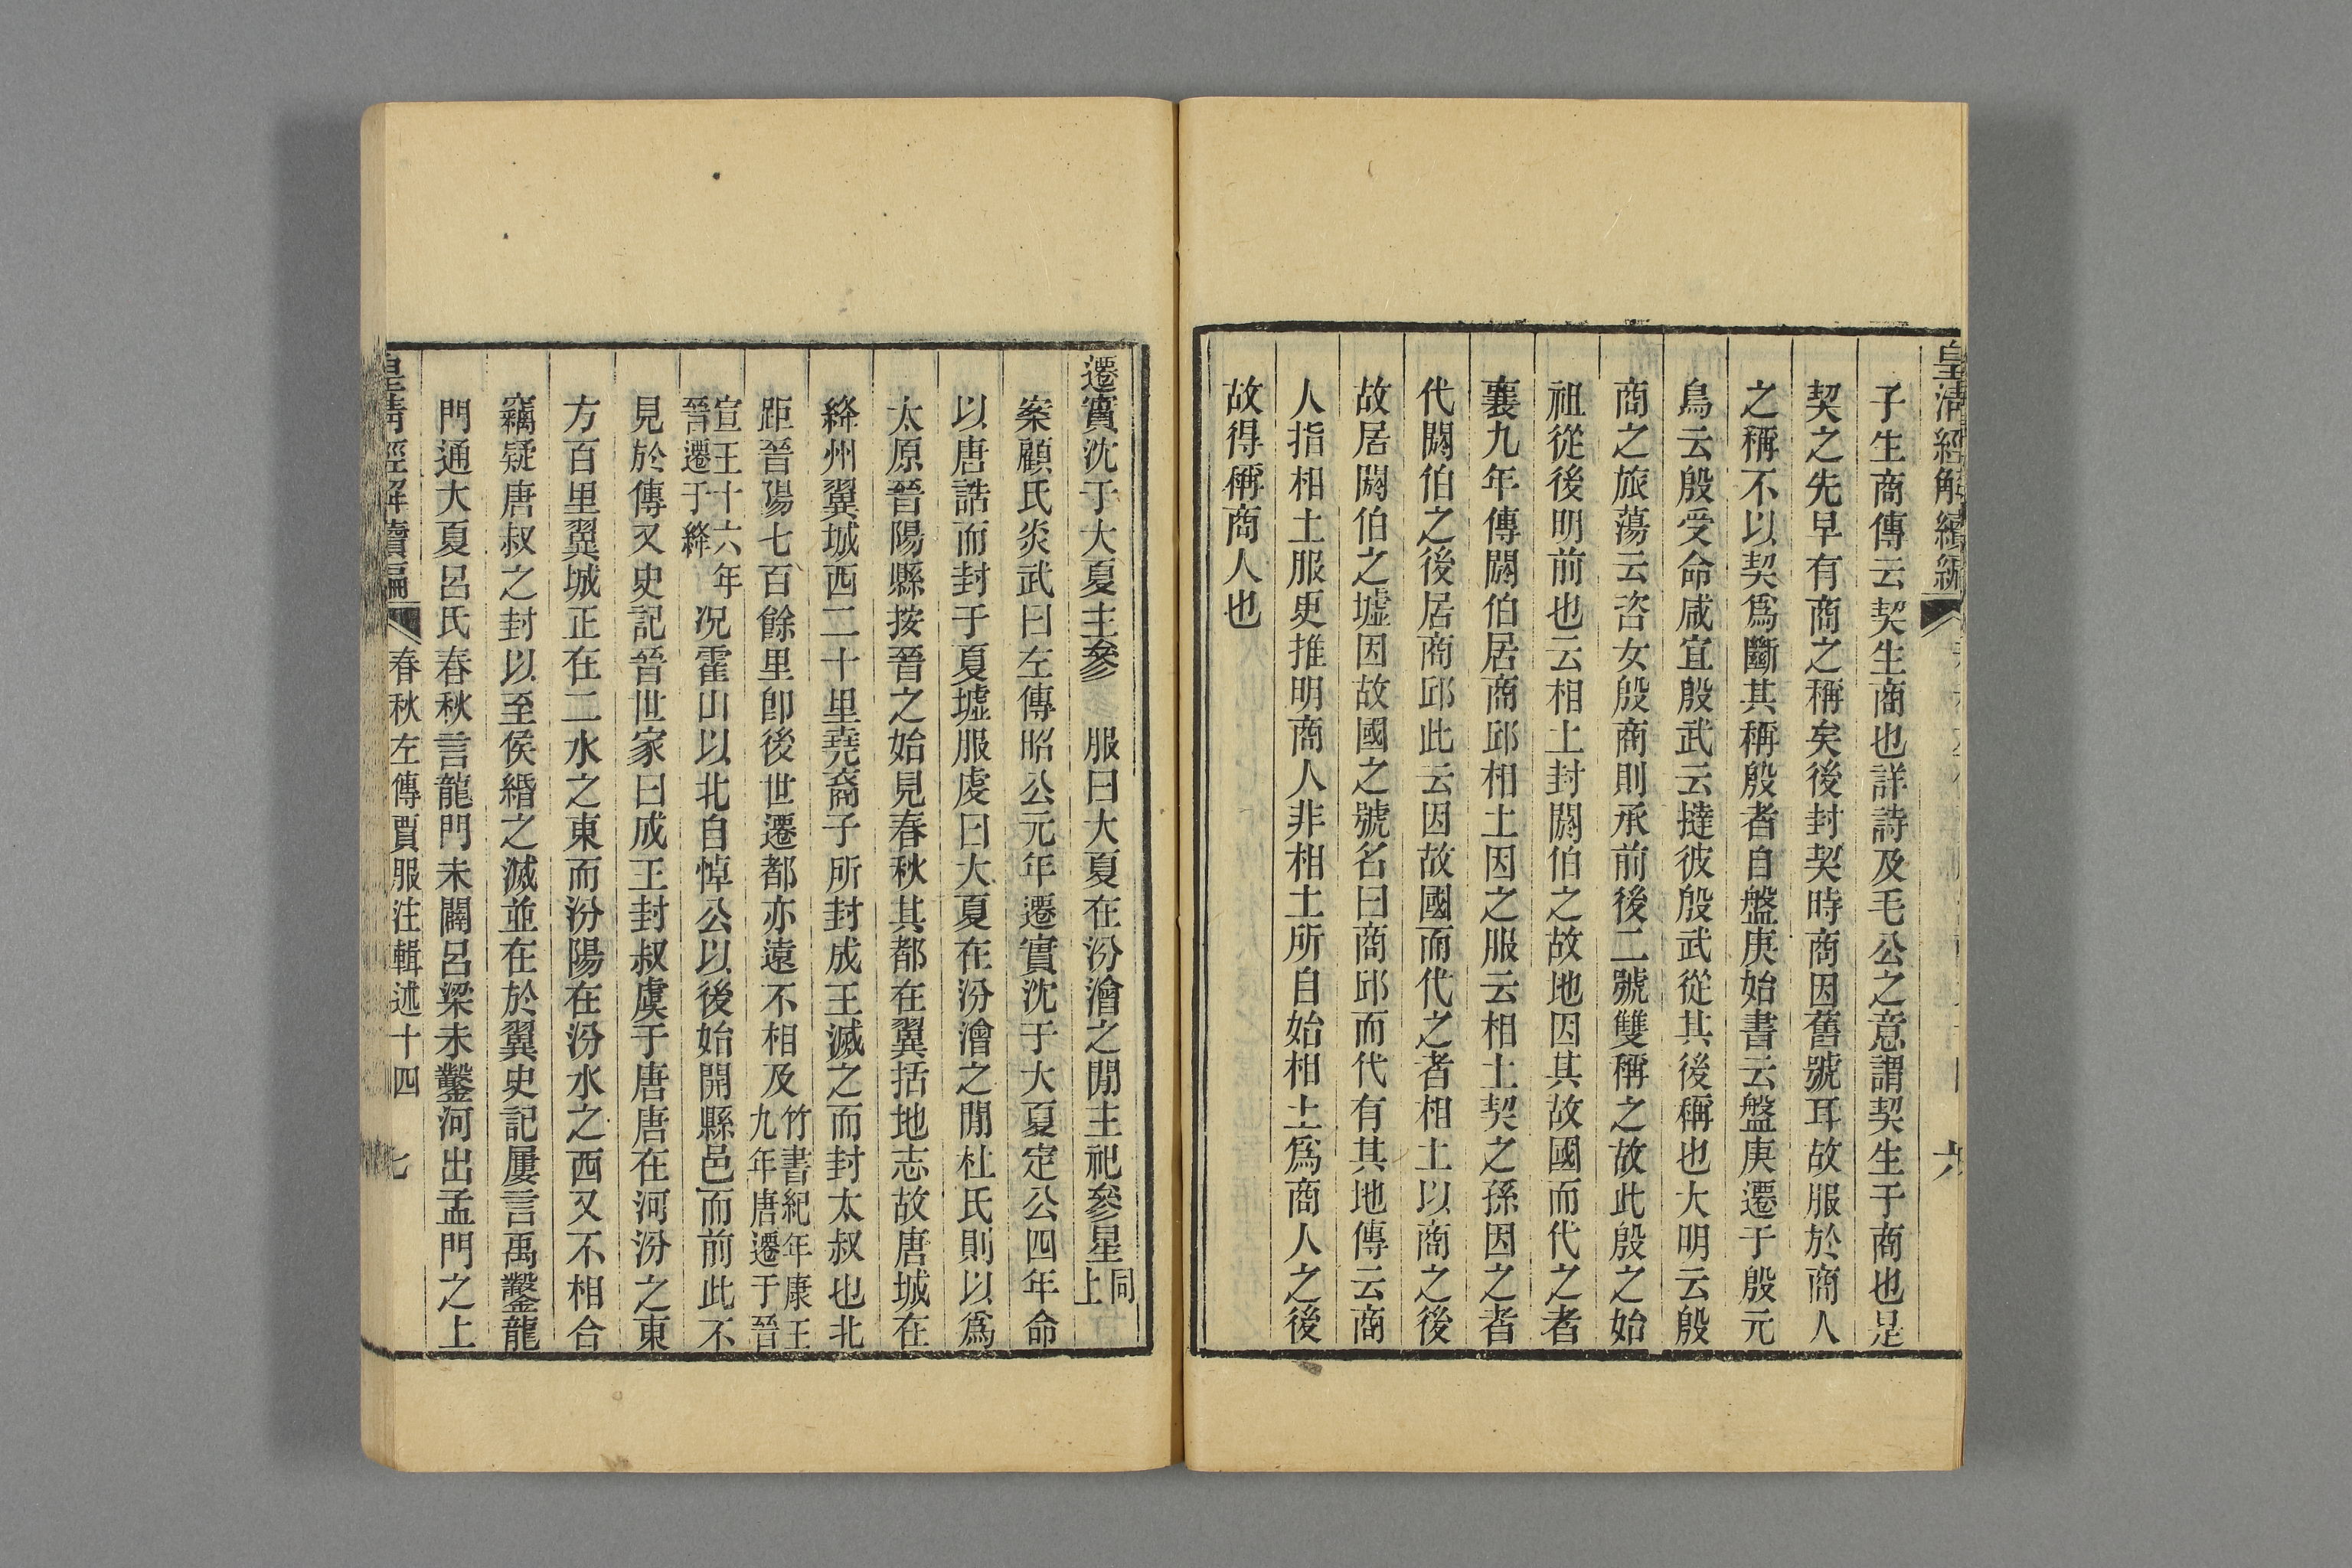 皇清經解續編
六
子生商傳云契生商也詳詩及毛公之意謂契生于商也是
契之先早有商之稱矣後封契時商因舊號耳故服於商人
之稱不以契爲斷其稱殷者自盤庚始書云盤庚遷于殷元
鳥云殷受命咸宜殷武云撻彼殷武從其後稱也大明云殷
商之旅蕩云咨女殷商則承前後二號雙稱之故此殷之始
祖從後明前也云相土封閼伯之故地因其故國而代之者
襄九年傳閼伯居商邱相土因之服云相土契之孫因之者
代閼伯之後居商邱此云因故國而代之者相土以商之後
故居閼伯之墟因故國之號名曰商邱而代有其地傳云商
人指相土服更推明商人非相土所自始相土爲商人之後
故得稱商人也
遷實沈于大夏主參　服曰大夏在汾澮之閒主祀參星同上
案顧氏炎武曰左傳昭公元年遷實沈于大夏定公四年命
以唐誥而封于夏墟服虔曰大夏在汾澮之閒杜氏則以爲
太原晉陽縣按晉之始見春秋其都在翼括地志故唐城在
絳州翼城西二十里堯裔子所封成王滅之而封太叔也北
距晉陽七百餘里卽後世遷都亦遠不相及竹書紀年康王九年唐遷于晉
宣王十六年晉遷于絳況霍山以北自悼公以後始開縣邑而前此不
見於傳又史記晉世家曰成王封叔虞于唐唐在河汾之東
方百里翼城正在二水之東而汾陽在汾水之西又不相合
竊疑唐叔之封以至侯緡之滅並在於翼史記屢言禹鑿龍
門通大夏呂氏春秋言龍門未闢呂梁未鑿河出孟門之上
皇清經解續編　春秋左傳賈服注輯述十四　七